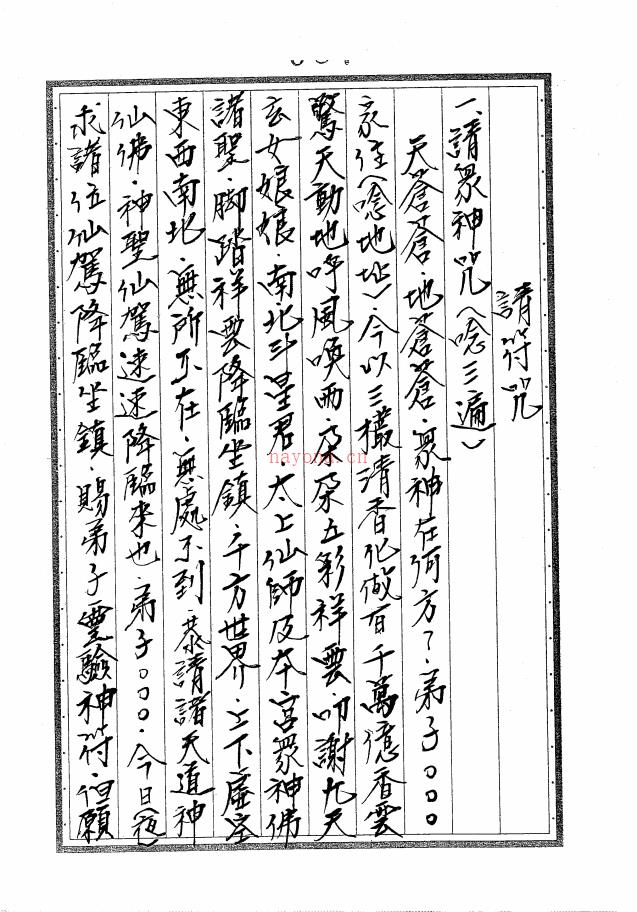 請符咒
一、請眾神咒(唸三遍)
天蒼蒼.地蒼蒼.眾神在何方?.弟子○○○
家住(唸地址).今以三樣清香化做百千萬億香雲
驚天動地呼風喚雨.朵朵五彩祥雲.叩謝九天
玄女娘娘.南北斗星君.太上仙師及本宮眾神佛
諸聖.腳踏祥雲降臨坐鎮.千方世界.上下虛空
東西南北.無所不在.無處不到.恭請諸天道神
仙佛.神聖仙駕速速降臨來也.弟子○○○.今日(夜)
求諸位仙駕降臨坐鎮.賜弟子靈驗神符.但願
nayona.cn